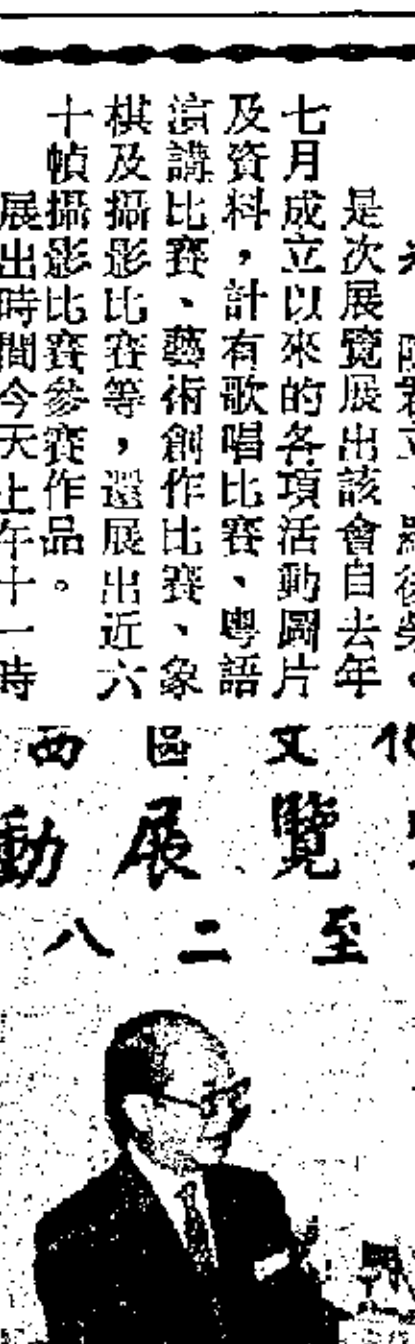 是次展覽展出該會自去年
七月成立以來的各項活動圖片
及資料，計有歌唱比賽、粵語
演講比賽、藝術創作比賽、象
棋及攝影比賽等，還展出近六
十幀攝影比賽參賽作品。
展出時間今天上午十一時
西 區 文 化
動 展 覽
八 二 至